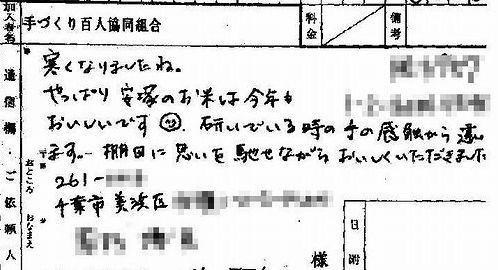 加入者名
手づくり百人協同組合
料金
備考
通信欄・ご依頼人
寒くなりましたね。
やっぱり安塚のお米は今年も
おいしいです 研いでいる時の手の感触から違い
ます。棚田に思いを馳せながらおいしくいただきました
261-
千葉市美浜区
おところ
おなまえ
様
日附